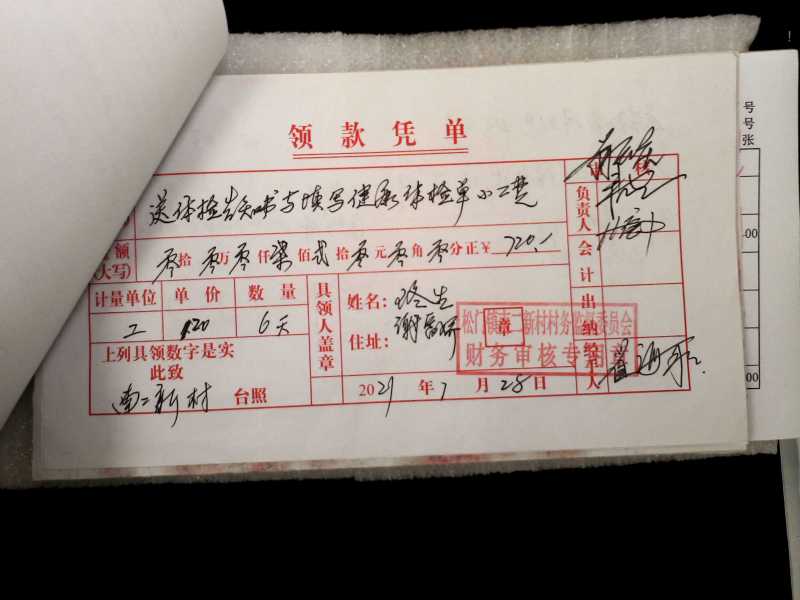 号
号
张
领款凭单
送体检告知书与填写健康体检单小工费
额
大写)
零拾零万零仟柒佰贰拾零元零角零分正¥720.-
负责人
会计
出纳
计量单位 单价 数量
工 120 6天
具领人盖章
姓名:
住址:
章
松门镇南二新村村务监督委员会
财务审核专用章
上列具领数字是实
此致
南二新村 台照
2021年1月28日
00
00